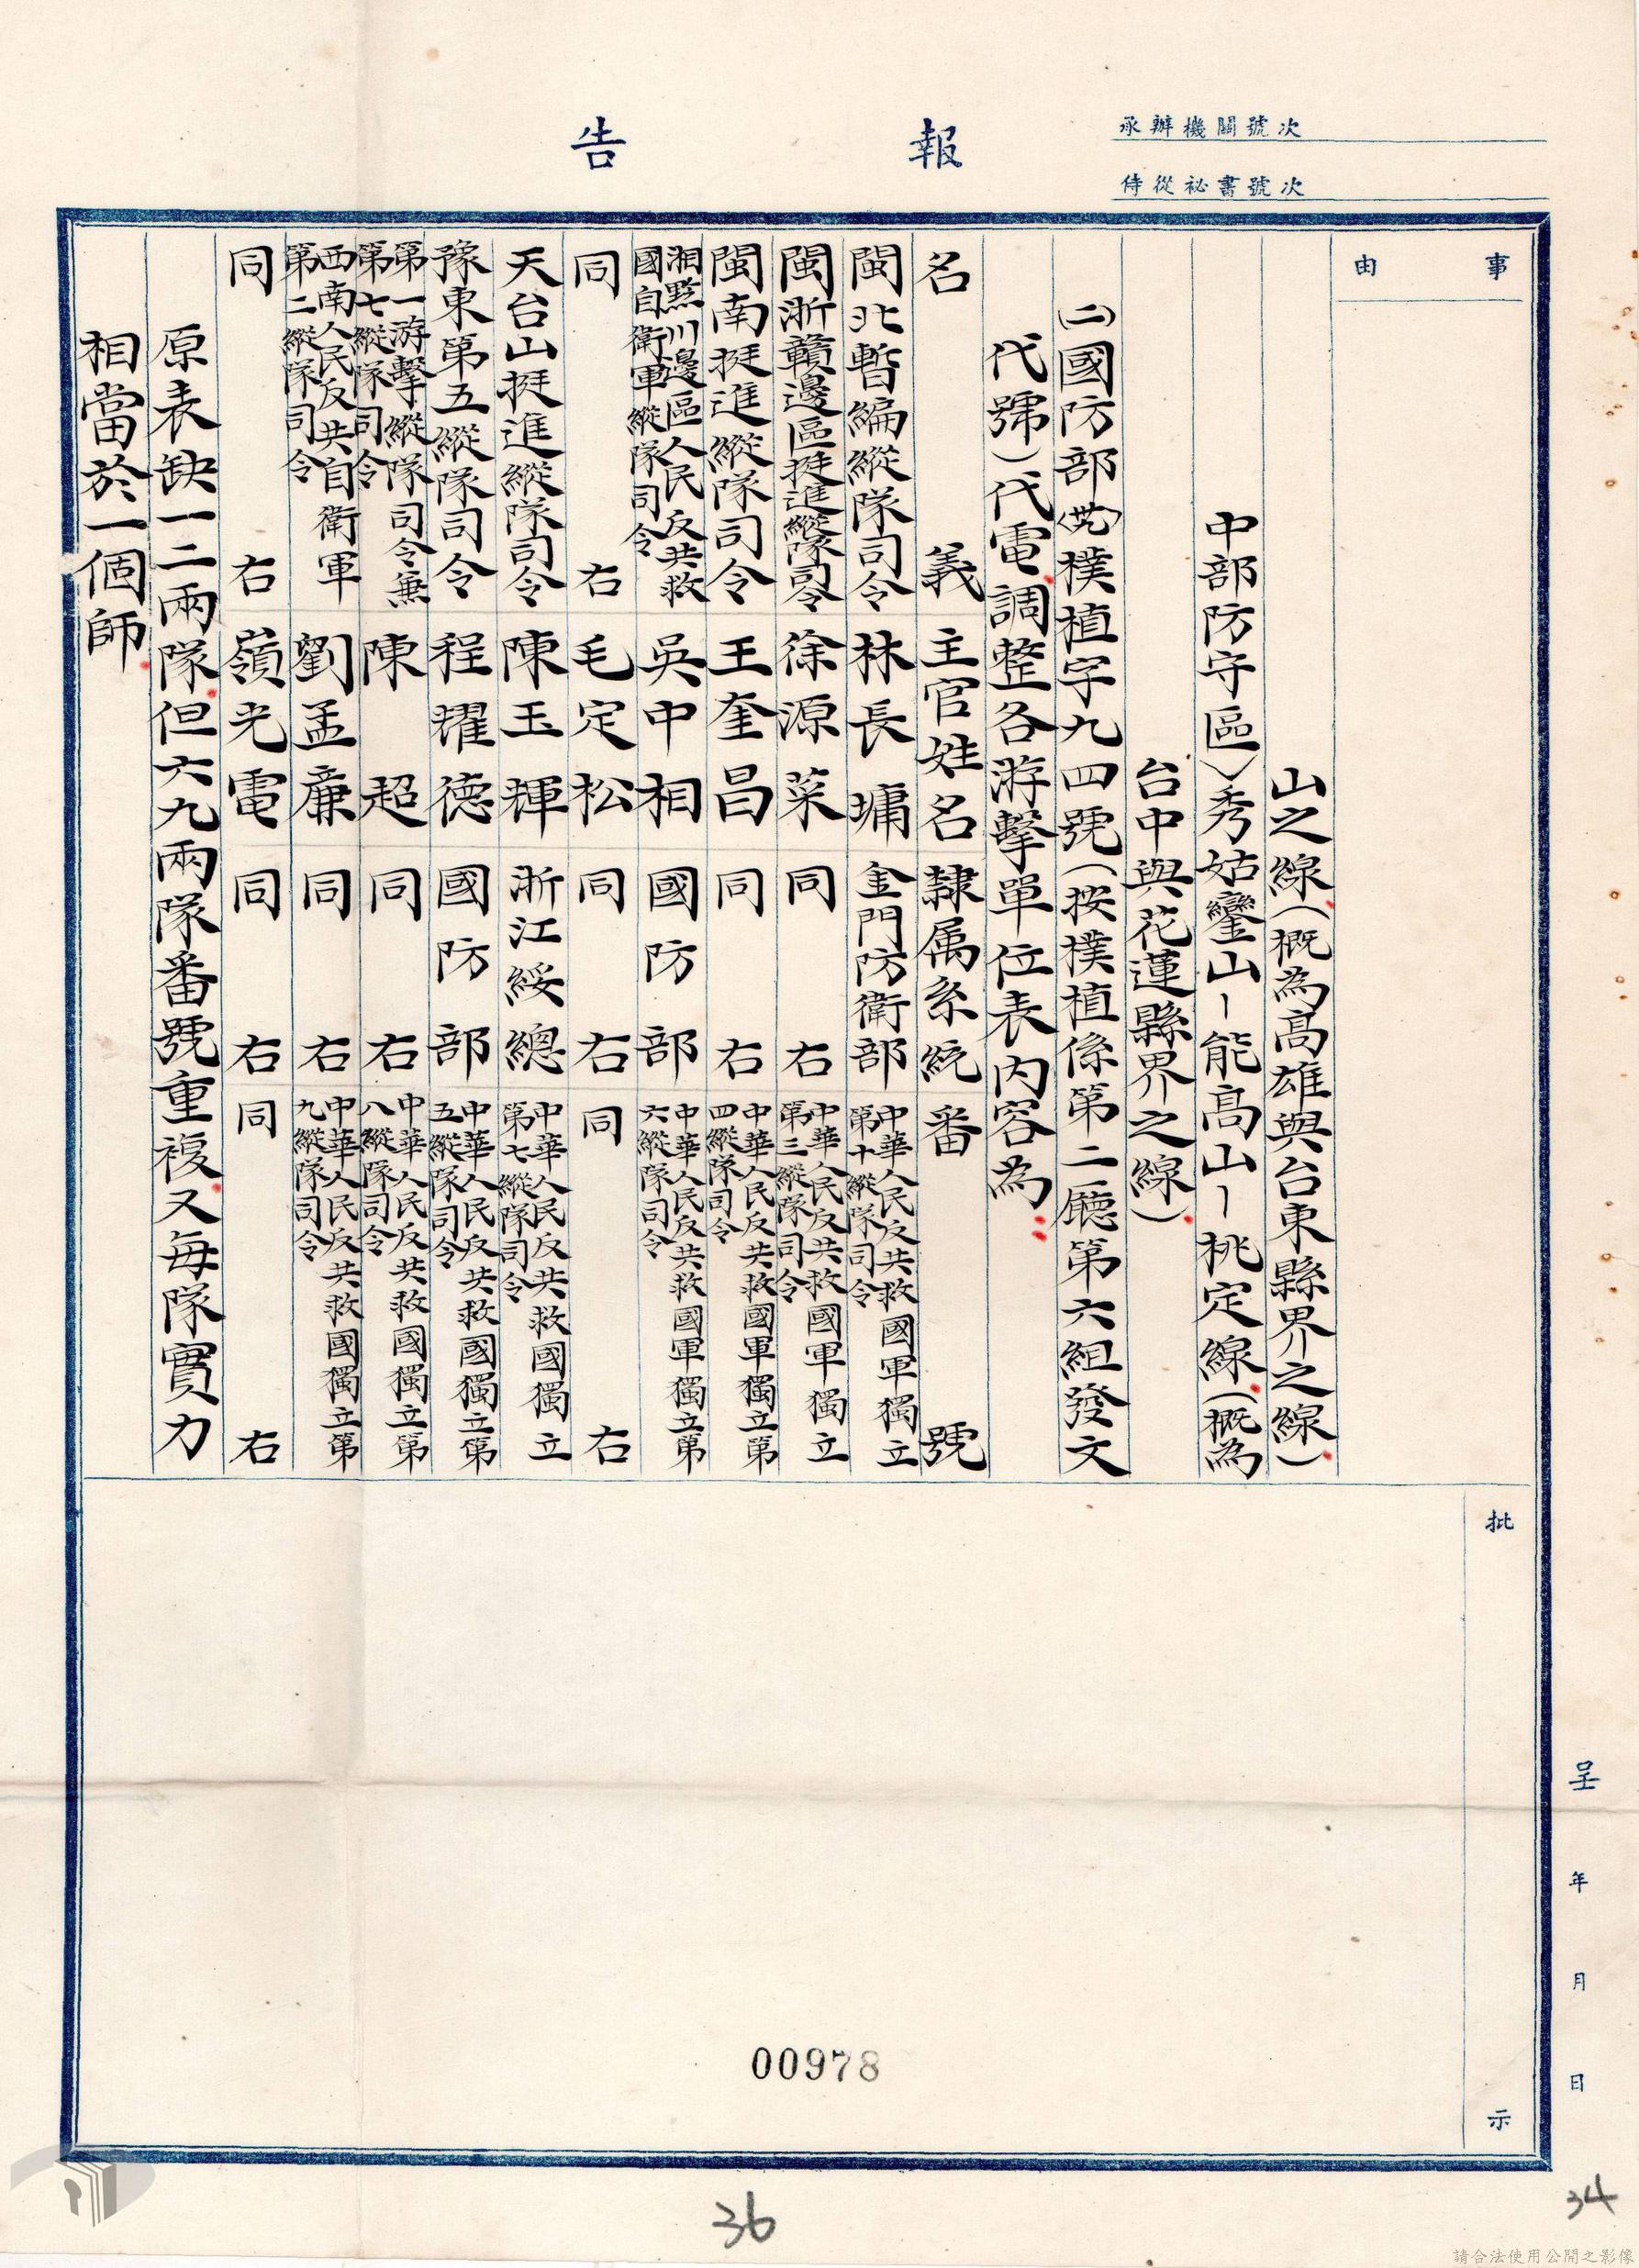 報告
承辦機關號次
侍從祕書號次
事由
山之線(概為高雄與台東縣界之線)
中部防守區)秀姑巒山—能高山—桃定線(概為
台中與花蓮縣界之線)
(二)國防部(卅)樸植字九四號(按樸植係第二廳第六組發文
代號)代電調整各游擊單位表內容為
名義 主官姓名 隸属系統 番號
閩北暫編縱隊司令 林長墉 金門防衛部 中華人民反共救國軍獨立第十縱隊司令
閩浙贛邊區挺進縱隊司令 徐源菜 同右 中華人民反共救國軍獨立第三縱隊司令
閩南挺進縱隊司令 王奎昌 同右 中華人民反共救國軍獨立第四縱隊司令
湘黔川邊區人民反共救國自衛軍縱隊司令 吳中相 國防部 中華人民反共救國軍獨立第六縱隊司令
同右 毛定松 同右 同右
天台山挺進縱隊司令 陳玉輝 浙江綏總 中華人民反共救國獨立第七縱隊司令
豫東第五縱隊司令 程耀德 國防部 中華人民反共救國獨立第五縱隊司令
第一游擊縱隊司令兼第七縱隊司令 陳超 同右 中華人民反共救國獨立第八縱隊司令
西南人民反共自衛軍第二縱隊司令 劉孟廉 同右 中華人民反共救國獨立第九縱隊司令
同右 嶺光電 同右 同右
原表缺一二兩隊但六九兩隊番號重複又每隊實力
相當於一個師
批示
呈 年 月 日
00978
36
34
請合法使用公開之影像